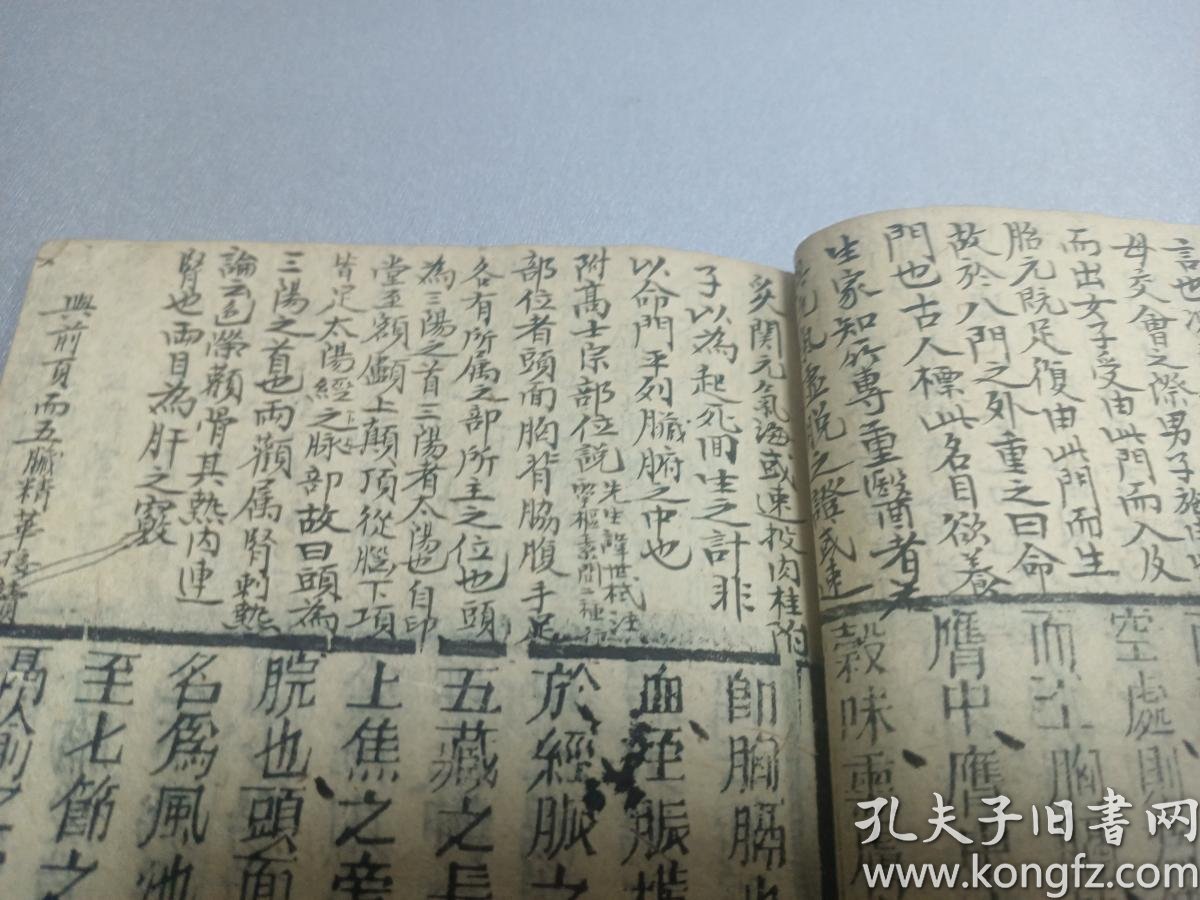 母交會之際男子施由此
而出女子受由此門而入及
胎元既足復由此門而生
故於八門之外重之曰命
門也古人標此名目欲養
生家知所專重醫者
元氣虛説之證或速
灸關元氣海或速投肉桂附
子以為起死回生之計非
以命門平列臟腑之中也
附高士宗部位說 先生諱世栻注
靈樞素問二種行
部位者頭面胸背脇腹手足
各有所屬之部所主之位也頭
為三陽之首三陽者太陽也自印
堂至額顱上顛頂從腦下項
皆足太陽經之脉部故曰頭為
三陽之首也兩顴屬腎刺熱
論云色榮顴骨其熱內連
腎也兩目為肝之竅
與前頁而五臟精華
空處則
而上胸
膺中膺
穀味
即胸膈
血至脈
於經脈之
五藏之長
上焦之旁
脘也頭面
名為風池
至七節之
孔夫子旧书网
www.kongfz.com